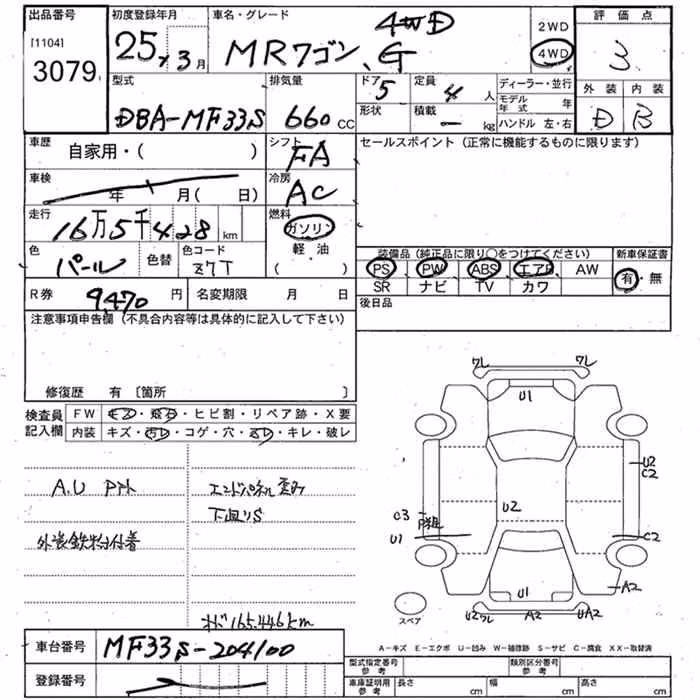 出品番号 初度登録年月 車名・グレード 評価点
[1104] 3079 25年3月 MRワゴン 4WD G 2WD 4WD 3
型式 排気量 ドア 定員 ディーラー・並行 外装 内装
DBA-MF33S 660cc 5 4人 モデル年式 年 D B
形状 積載 - kg ハンドル 左・右
車歴 自家用・( ) シフト FA セールスポイント(正常に機能するものに限ります)
車検 年 月(日) 冷房 AC
走行 16万5千428km 燃料 ガソリン 軽・油 ( )
色 パール 色替 色コード Z7T
装備品(純正品に限り○をつけてください) 新車保証書
PS PW ABS エアB AW 有・無
SR ナビ TV カワ
R券 9,470円 名変期限 月 日 後日品
注意事項申告欄(不具合内容等は具体的に記入して下さい)
修復歴 有〔箇所 〕
検査員記入欄 FW キズ・飛石・ヒビ割・リペア跡・X要
内装 キズ・汚レ・コゲ・穴・スレ・キレ・破レ
ワレ ワレ
U1
A.U
エンドパネル
下回りS
U2
U2
C2
C3
U1
C2
外装鉄粉付着
U1
A2
スペア
U2ワレ A2 UA2
165,446km
A-キズ E-エクボ U-凹み W-補修跡 S-サビ C-腐食 XX-取替済
車台番号 MF33S-204100
型式指定番号 参考 類別区分番号 参考
登録番号
車庫証明用 参考 長さ cm 幅 cm 高さ cm